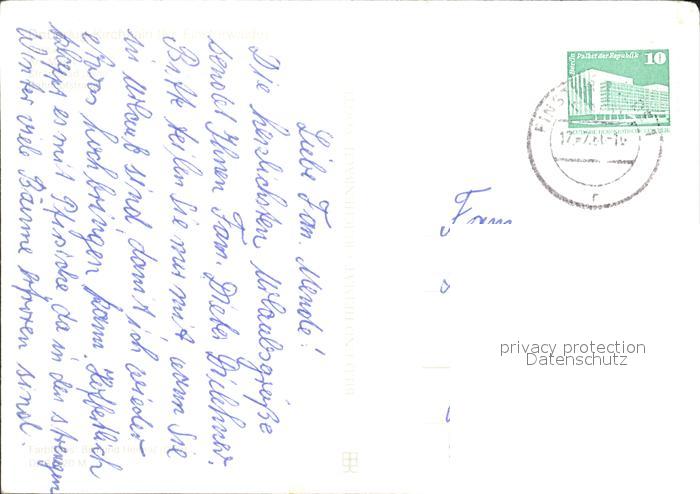 Liebe Fam. Mende!
Die herzlichsten Urlaubsgrüße
sendet Ihnen Fam. Dieter
Bitte teilen Sie mir mit wann Sie
in Urlaub sind damit ich wieder
etwas hochbringen kann. Hoffentlich
klappt es mit Pfirsiche da in den strengen
Winter viele Bäume erfroren sind.
Berlin Palast der Republik
10
privacy protection
Datenschutz